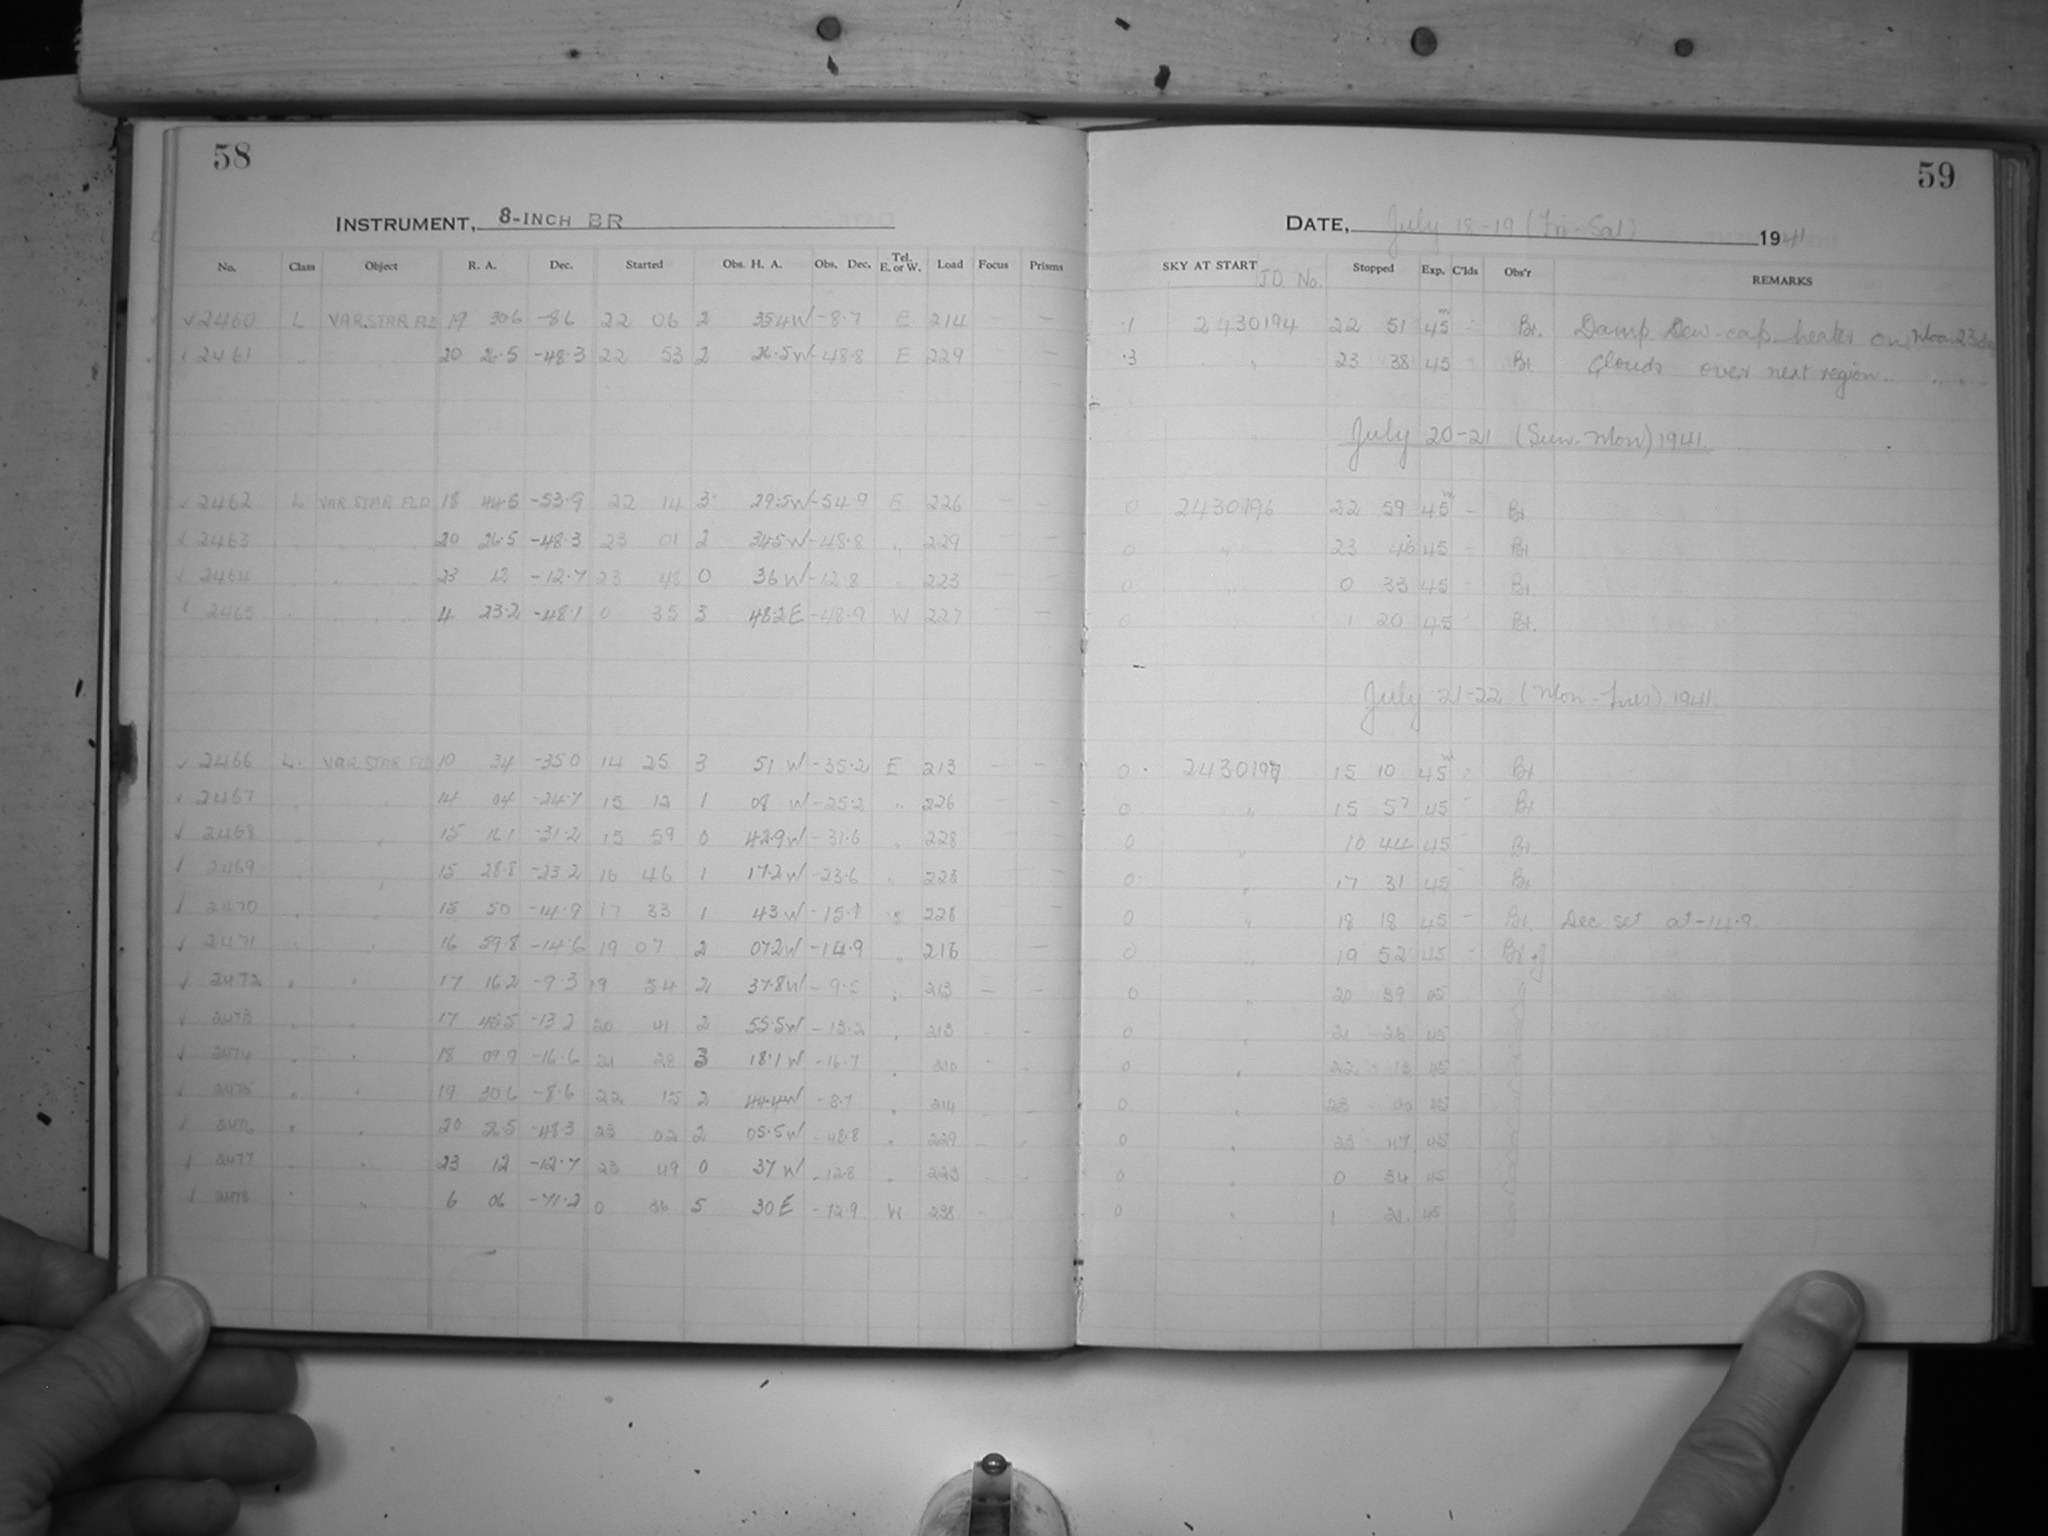 58
59
INSTRUMENT, 8-INCH BR
DATE, July 18-19 (Fri-Sat) 1941
No. Class Object R. A. Dec. Started Obs. H. A. Obs. Dec. Tel. E. or W. Load Focus Prisms SKY AT START J.D. No. Stopped Exp. C'lds Obs'r REMARKS
✓ 2460 L VAR.STAR FLD 19 30.6 -8.6 22 06 2 35.4W -8.7 E 214 — — .1 2430194 22 51 45m - Br. Damp Dew-cap heater on, Moon
✓ 2461 " " 20 26.5 -48.3 22 53 2 26.5W -48.8 E 229 — — .3 " 23 38 45 - Br. Clouds over next region.
July 20-21 (Sun-Mon) 1941.
✓ 2462 L VAR.STAR FLD 18 44.5 -53.9 22 14 3 29.5W -54.9 E 226 — — 0 2430196 22 59 45m - Br
✓ 2463 " " 20 26.5 -48.3 23 01 2 34.5W -48.8 " 229 — — 0 " 23 46 45 - Br
✓ 2464 " " 23 12 -12.7 23 48 0 36W -12.8 " 223 — — 0 " 0 33 45 - Br
✓ 2465 " " 4 23.2 -48.1 0 35 3 48.2E -48.9 W 227 — — 0 " 1 20 45 - Br.
July 21-22 (Mon-Tues) 1941.
✓ 2466 L. VAR.STAR FLD 10 34 -35.0 14 25 3 51 W -35.2 E 213 — — 0 2430197 15 10 45m - Br
✓ 2467 " " 14 04 -24.7 15 12 1 08 W -25.2 " 226 — — 0 " 15 57 45 - Br
✓ 2468 " " 15 16.1 -31.2 15 59 0 42.9W -31.6 " 228 — — 0 " 16 44 45 - Br
✓ 2469 " " 15 28.8 -23.2 16 46 1 17.2W -23.6 " 223 — — 0 " 17 31 45 - Br
✓ 2470 " " 15 50 -14.9 17 33 1 43W " 228 — — 0 " 18 18 45 - Br. Dec set at -14.9.
✓ 2471 " " 16 59.8 -14.6 19 07 2 07.2W -14.9 " 216 — — 0 " 19 52 45 - Br
✓ 2472 " " 17 16.2 -9.3 19 54 2 37.8W -9.5 " 213 — — 0 " 20 39 45
✓ 2473 " " 17 45.5 -13.2 20 41 2 55.5W -13.2 " 213 - - 0 " 21 26 45
✓ 2474 " " 18 09.9 -16.6 21 28 3 18.1W -16.7 " 210 - - 0 " 22 13 45
✓ 2475 " " 19 30.6 -8.6 22 15 2 44.4W -8.7 " 214 - - 0 " 23 00 45
✓ 2476 " " 20 26.5 -48.3 23 02 2 05.5W -48.8 " 229 - - 0 " 23 47 45
✓ 2477 " " 23 12 -12.7 23 49 0 37W -12.8 " 223 - - 0 " 0 34 45
✓ 2478 " " 6 06 -71.2 0 36 5 30E -72.9 W 238 - - 0 " 1 21 45